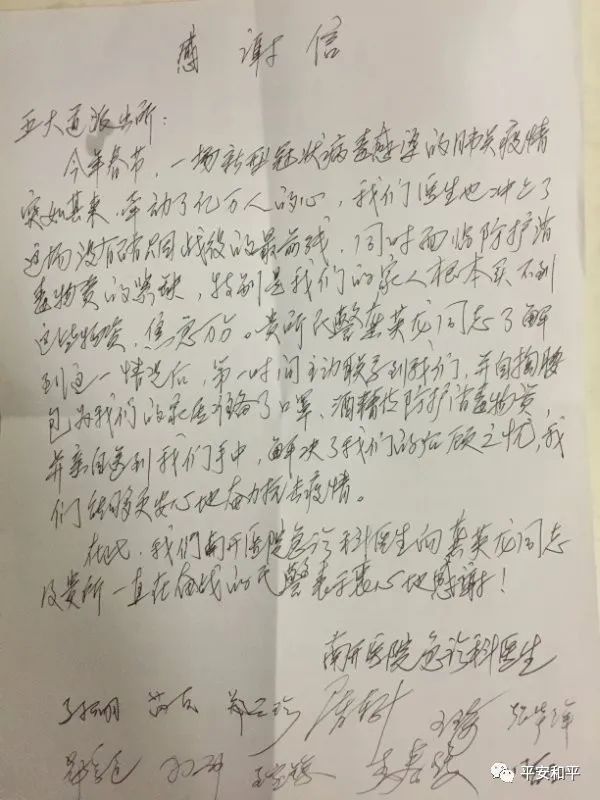 感谢信
五大道派出所：
今年春节，一场新型冠状病毒感染的肺炎疫情
突如其来，牵动了亿万人的心，我们医生也冲上了
这场没有硝烟战役的最前线，同时面临防护消
毒物资的紧缺，特别是我们的家人根本买不到
这些物资，焦急万分。贵所民警龚英龙同志了解
到这一情况后，第一时间主动联系到我们，并自掏腰
包为我们的家属准备了口罩、酒精等防护消毒物资，
并亲自送到我们手中，解决了我们的后顾之忧，我
们能够更安心地奋力抗击疫情。
在此，我们南开医院急诊科医生向龚英龙同志
及贵所一直在奋战的民警表示衷心地感谢！
南开医院急诊科医生
平安和平